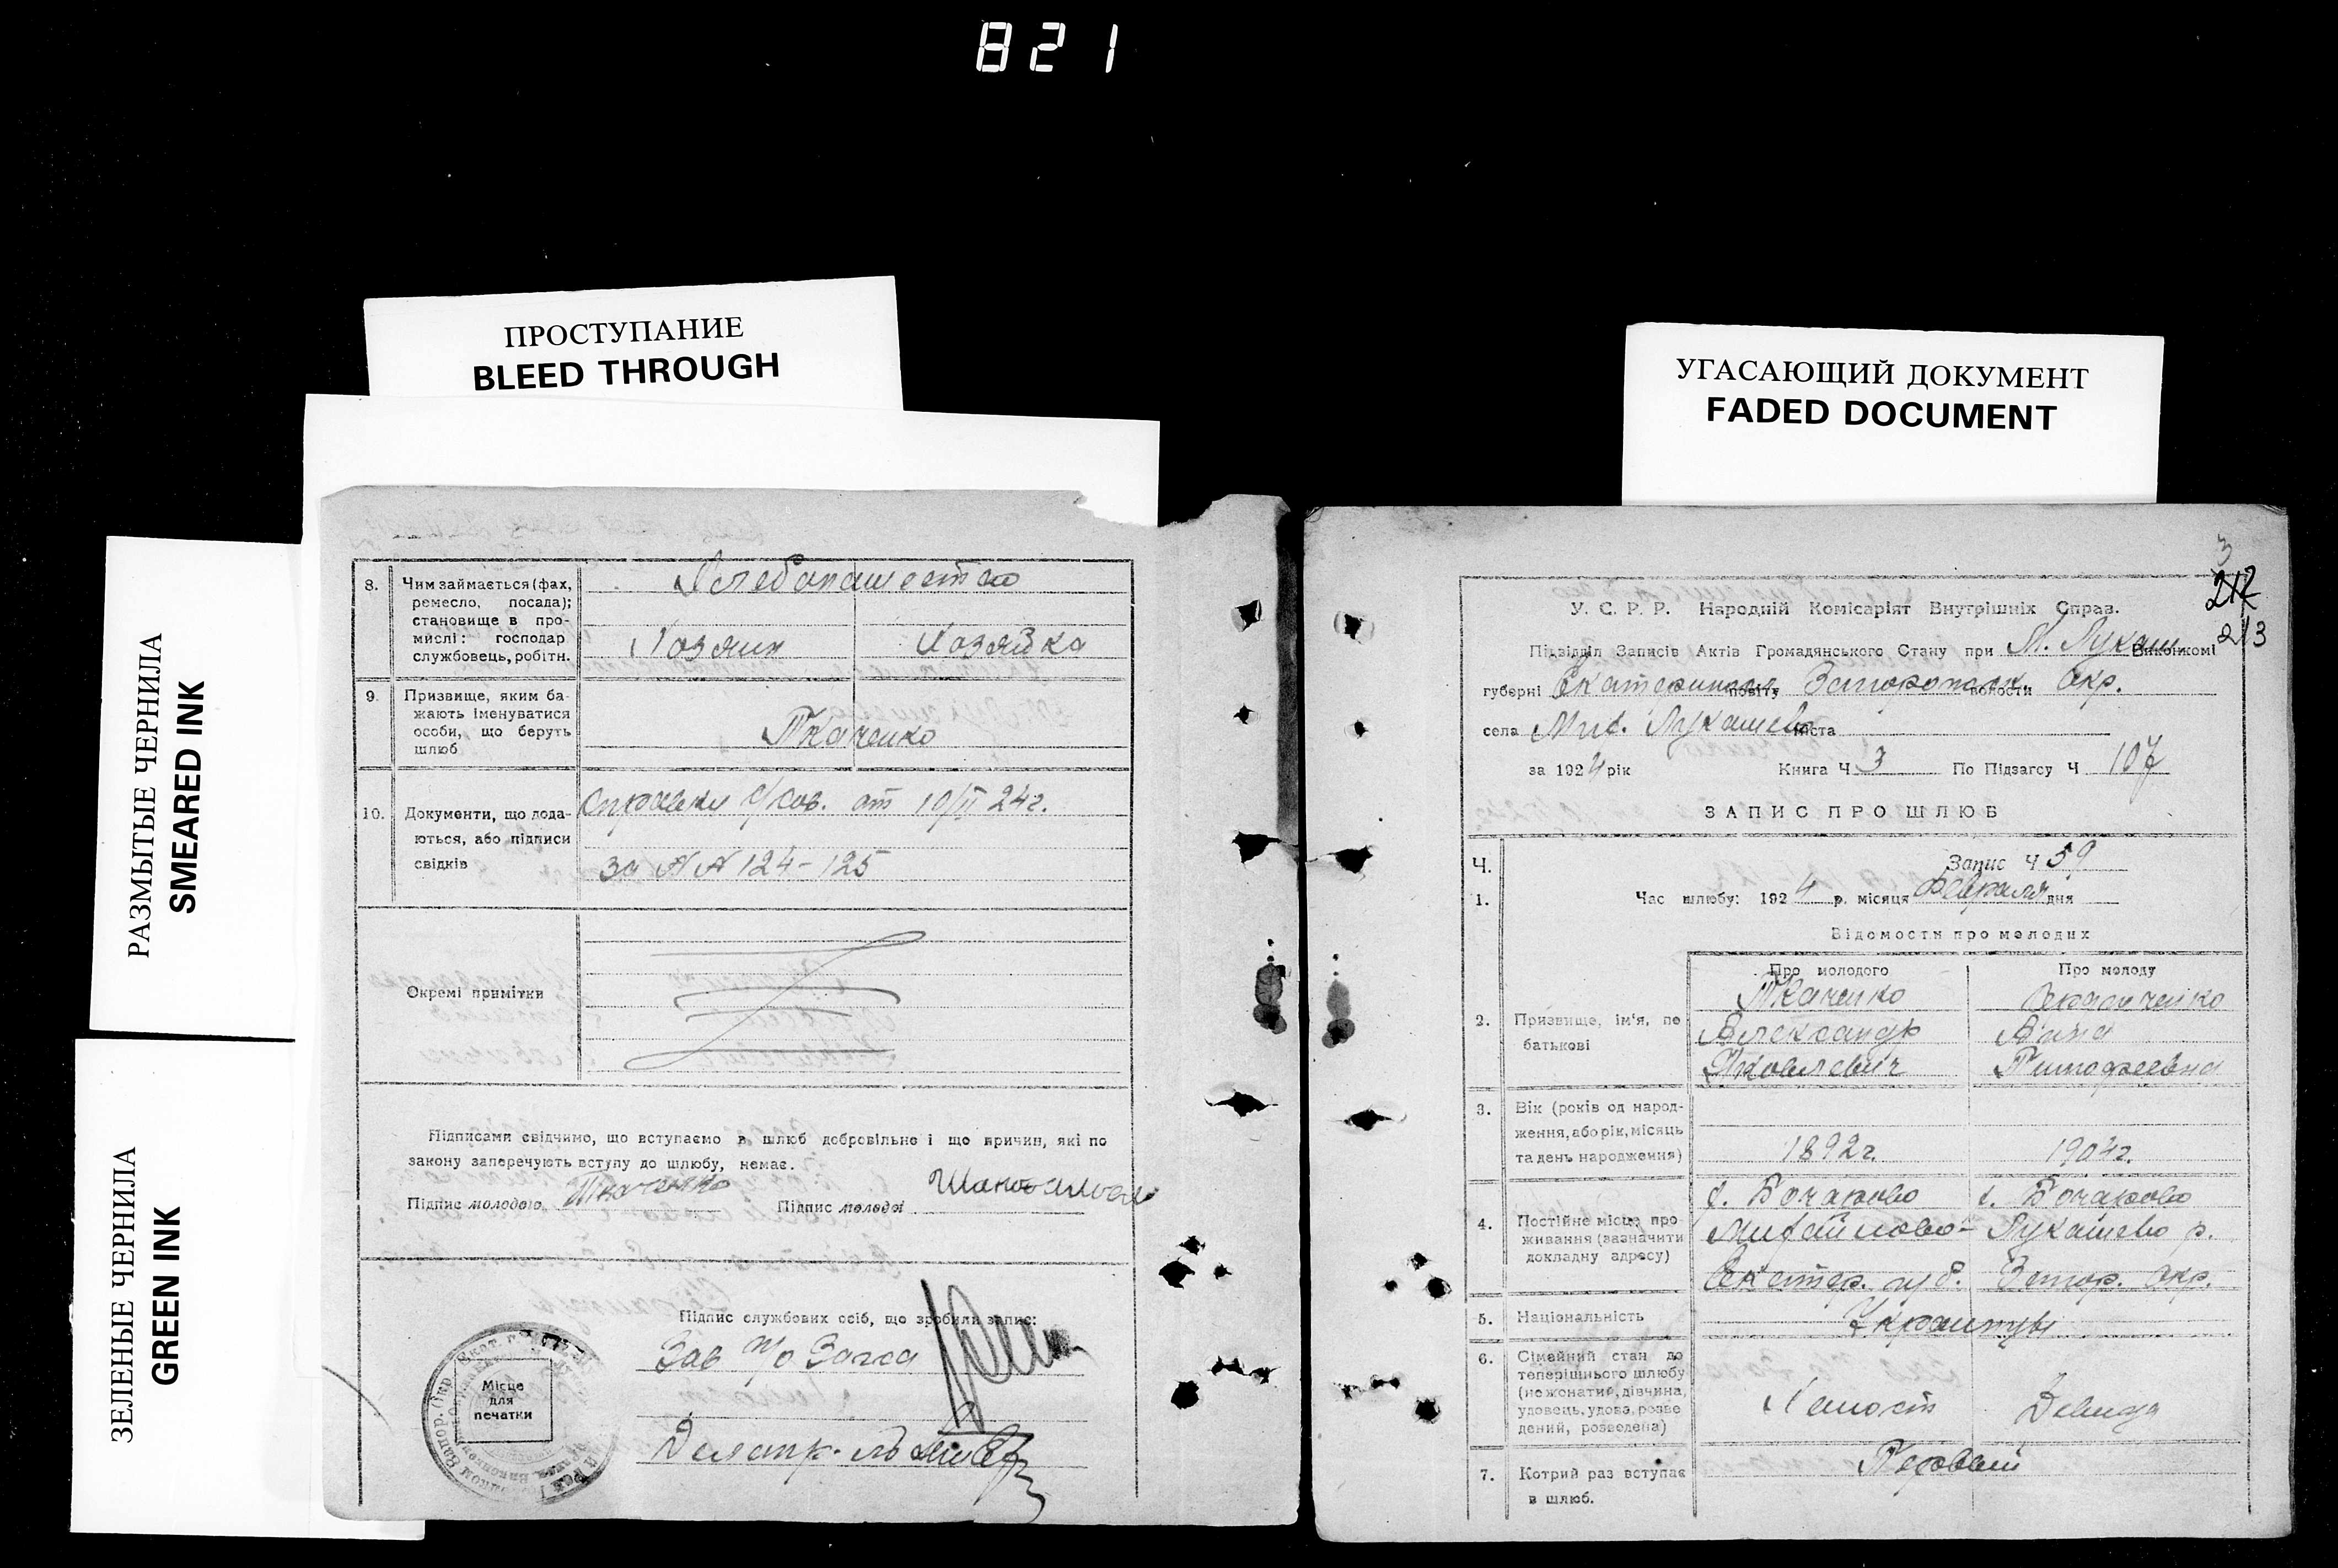 821
ПРОСТУПАНИЕ
BLEED THROUGH
УГАСАЮЩИЙ ДОКУМЕНТ
FADED DOCUMENT
РАЗМЫТЫЕ ЧЕРНИЛА
SMEARED INK
ЗЕЛЕНЫЕ ЧЕРНИЛА
GREEN INK
8. Чим займається (фах,
ремесло, посада);
становище в про-
мислі: господар
службовець, робітн.
Хлебопашество
Хозяин Хозяйка
9. Призвище, яким ба-
жають іменуватися
особи, що беруть
шлюб
Ткаченко
10. Документи, що дода-
ються, або підписи
свідків
Справки с/сов. от 10/II 24г.
за № № 124-125
Окремі примітки
Підписами свідчимо, що вступаємо в шлюб добровільно і що причин, які по
закону заперечують вступу до шлюбу, немає.
Підпис молодого Ткаченко Підпис молодої
Підпис службових осіб, що зробили запис:
Зав п/о Загса
Місце
для
печатки
Делопр-ль
3
212
213
У. С. Р. Р. Народній Комісаріят Внутрішніх Справ.
Підвідділ Записів Актів Громадянського Стану при М. Лукаш. Виконкомі
губерні Екатериносл повіту Запорожск волости Окр.
села Мих. Лукашево міста
за 1924 рік Книга Ч 3 По Підзагсу Ч 107
ЗАПИС ПРО ШЛЮБ
Ч. Запис Ч 59
1. Час шлюбу: 1924 р. місяця Февраля дня
Відомости про молодих
Про молодого Про молоду
2. Призвище, ім'я, по
батькові
Ткаченко
Александр Анна
Яковлевич Тимофеевна
3. Вік (років од народ-
ження, або рік, місяць
та день народження)
1892г. 1904г.
4. Постійне місце про-
живання (зазначити
докладну адресу)
с. Бочарово с. Бочарово
Михайлово- Лукашево р.
Екатер. губ. Запор. Окр.
5. Національність
Украинцы
6. Сімейний стан до
теперішнього шлюбу
(не жонатий, дівчина,
удовець, удова, розве
дений, розведена)
Холост Девица
7. Котрий раз вступає
в шлюб.
Первый